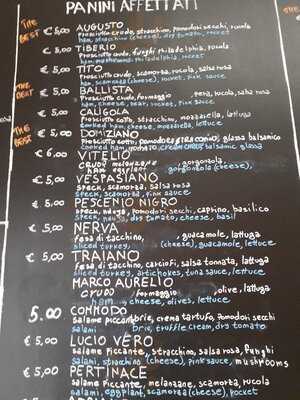 PANINI AFFETTATI
THE BEST
€ 5,00 AUGUSTO
Prosciutto crudo, stracchino, pomodori secchi, rucola
ham, stracchino (cheese), dry tomato, rocket
€ 5,00 TIBERIO
Prosciutto crudo, funghi philadelphia, rucola
ham, mushrooms philadelphia, rocket
€ 5,00 TITO
Prosciutto crudo, scamorza, rucola, salsa rosa
ham, scamorza (cheese), rocket, pink sauce
THE BEST
€ 5,00 BALLISTA
Prosciutto crudo, formaggio pera, rucola, salsa rosa
ham, cheese, pear, rocket, pink sauce
€ 5,00 CALIGOLA
Prosciutto cotto, stracchino, mozzarella, lattuga
cooked ham, cheese, mozzarella, lettuce
THE BEST
€ 5,00 DOMIZIANO
Prosciutto cotto, pomodoro, glassa balsamico
cooked ham, balsamic glassa
€ 6,00 VITELIO
crudo melanzane, gorgonzola,
ham eggplant, gorgonzola (cheese),
€ 5,00 VESPASIANO
speck, scamorza, salsa rosa
speck, scamorza, pink sauce
€ 5,00 PESCENIO NIGRO
speck, nduja, pomodori secchi, caprino, basilico
speck, nduj, dry tomato, cheese, basil
€ 5,00 NERVA
fesa di tacchino, guacamole, lattuga
sliced turkey, (cheese), guacamole, lettuce
€ 5,00 TRAIANO
fesa di tacchino, carciofi, salsa tonnata, lattuga
sliced turkey, artichokes, tuna sauce, lettuce
MARCO AURELIO
crudo formaggio, olive, lattuga
ham (cheese), olives, lettuce
5.00 COMMODO
salame piccante, brie, crema tartufo, pomodori secchi
salami brie, truffle cream, dry tomato
€ 5,00 LUCIO VERO
salame piccante, stracchino, salsa rosa, funghi
salami, stracchino (cheese), pink sauce, mushrooms
€ 5,00 PERTINACE
salame piccante, melanzane, scamorza, rucola
salami, eggplant, scamorza (cheese), rocket